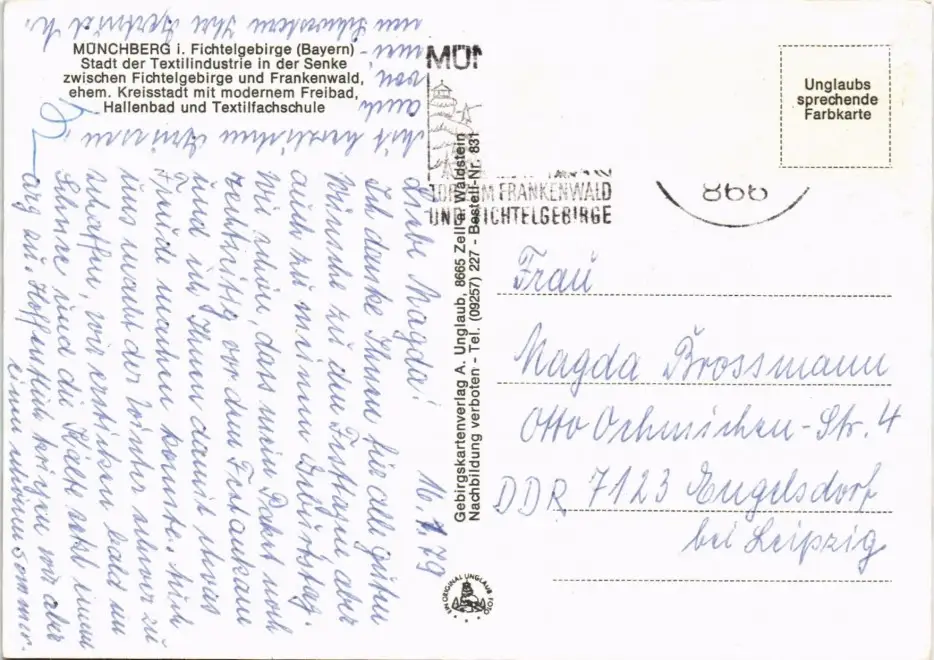 MÜNCHBERG i. Fichtelgebirge (Bayern)
Stadt der Textilindustrie in der Senke
zwischen Fichtelgebirge und Frankenwald,
ehem. Kreisstadt mit modernem Freibad,
Hallenbad und Textilfachschule
Liebe Magda! 16.1.79
Ich danke Ihnen für alle guten
Wünsche zu den Festtagen aber
auch zu meinem Geburtstag.
Wie schön, dass mein Paket noch
rechtzeitig vor dem Fest ankam
und ich Ihnen damit etwas
Freude machen konnte. Auch
uns macht der Winter schwer zu
schaffen, wir ersticken bald im
Schnee und die Kälte setzt einem
arg zu. Hoffentlich kriegen wir aber
einen schönen Sommer.
Mit herzlichen Grüssen,
auch
von
mei-
nen Schwestern Ihre Gertrud
MÜN
FRANKENWALD
UND FICHTELGEBIRGE
866
Gebirgskartenverlag A. Unglaub, 8665 Zell a. Waldstein
Nachbildung verboten - Tel. (09257) 227 - Bestell-Nr. 831
EIN ORIGINAL UNGLAUB FOTO
Unglaubs
sprechende
Farbkarte
Frau
Magda Brossmann
Otto Oehmichen-Str. 4
DDR 7123 Engelsdorf
bei Leipzig